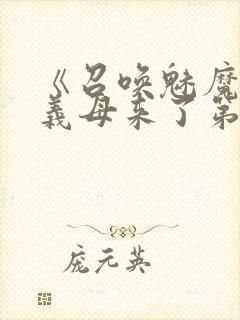 《召唤魅魔
义母来了第
庞元英